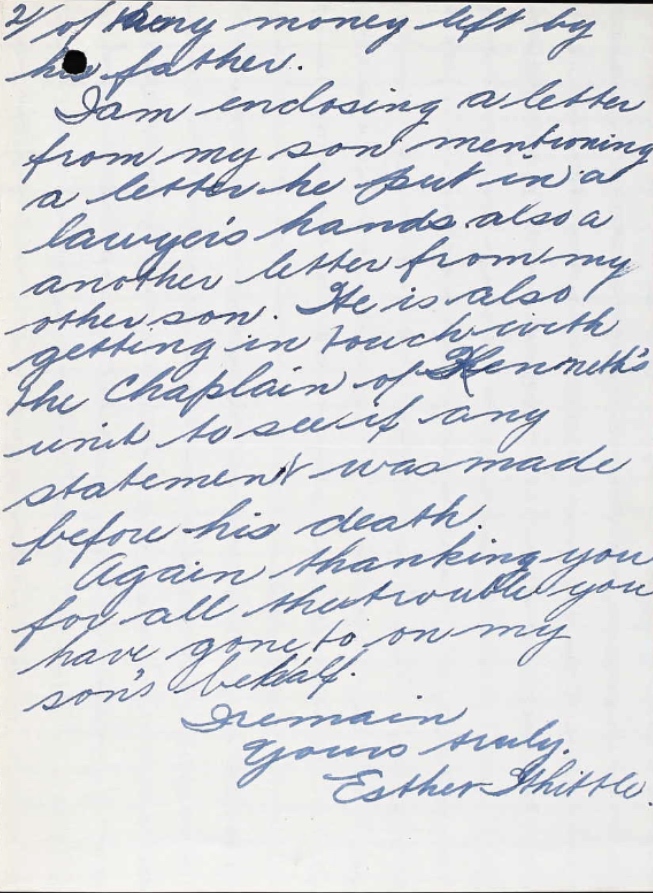 2/ of any money left by
his father.
I am enclosing a letter
from my son mentioning
a letter he put in a
lawyer's hands also a
another letter from my
other son. He is also
getting in touch with
the Chaplain of Kenneth's
unit to see if any
statement was made
before his death.
Again thanking you
for all the trouble you
have gone to on my
son's behalf.
I remain
Yours truly.
Esther Whittle.